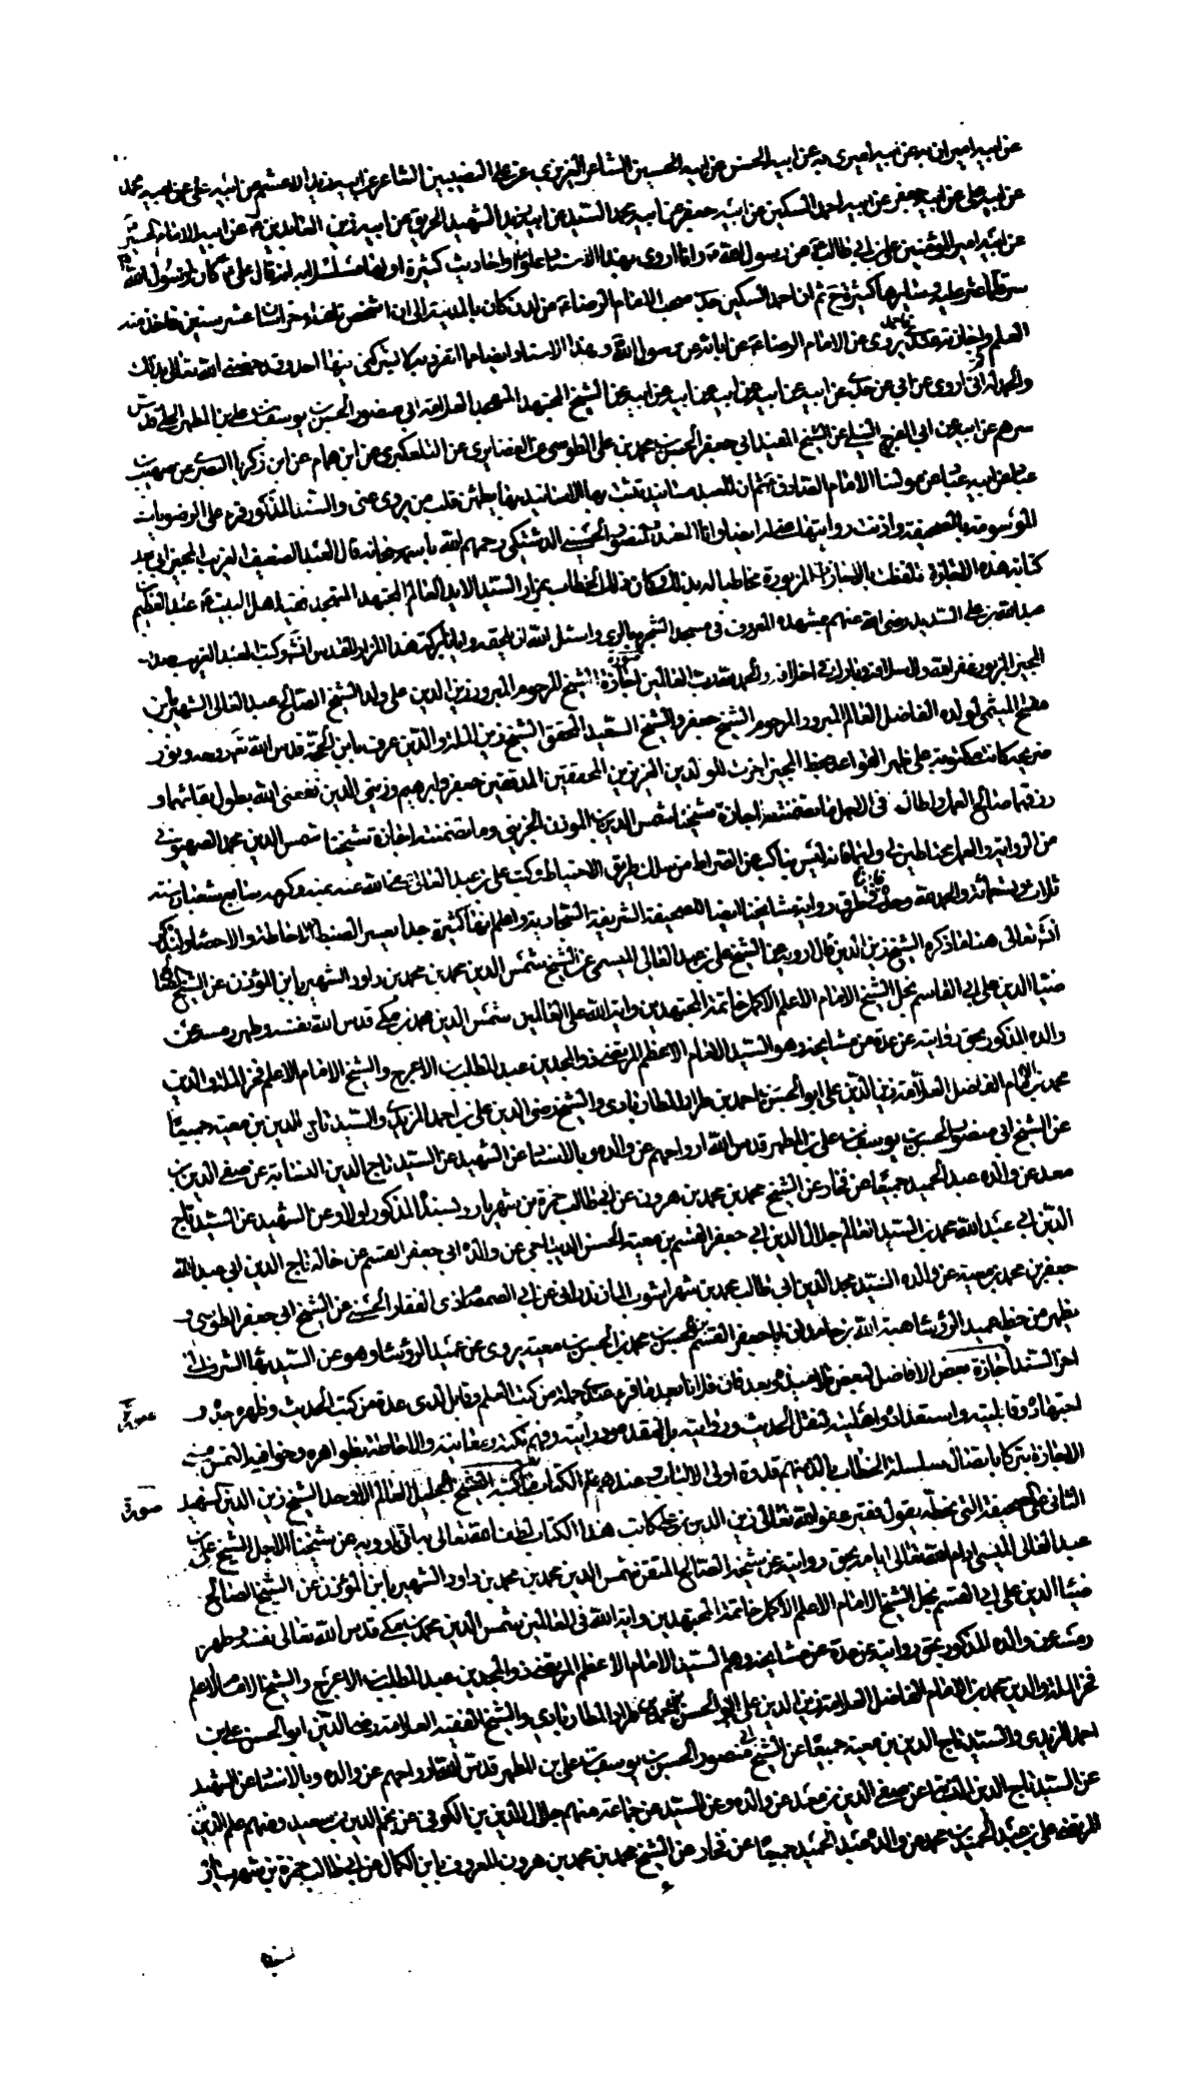 عن ابيه عن ابيه اميرى به عن ابيه الحسن عن ابيه الحسين الشاعر العزيزى عن على النصيبين الشاعر عن ابيه زيد الاعشم عن ابيه على عن ابيه محمد
عن ابيه على عن ابيه جعفر عن ابيه احمد السكين عن ابيه جعفر عن ابيه محمد السيد عن ابيه زيد الشهيد الحريق عن ابيه زين العابدين عن ابيه الامام الحسين
عن ابيه امير المؤمنين على بن ابى طالب عن رسول الله وانا اروى بهذا الاسناد احاديث كثيرة
ثم ان احمد السكين جدى صحب الامام الرضا من لدن كان بالمدينة الى ان اشخص تلقاء خراسان عشر سنين فاخذ منه
العلم واجازته عندى يروى عن الامام الرضا عن ابائه عن رسول الله وهذا الاسناد ايضا مما انفرد به لا يشركنى فيه احد وقد خصنى الله تعالى بذلك
والحمد لله انى اروى عن ابى عن جدى عن ابيه عن ابيه عن ابيه عن ابيه عن ابيه عن الشيخ المجتهد العلامة ابى منصور الحسن بن يوسف بن على بن المطهر الحلى قدس
سرهم عن ابيه عن ابى الفرج عن الشيخ المفيد ابى جعفر الحسن بن محمد بن على الطوسى عن الغضايرى عن التلعكبرى عن ابن همام عن ابن زكريا البصرى عن صهيب
عباد عن ابيه عباد عن مولنا الامام الصادق ثم ان للعبد مسانيد تثبت بها الاسانيد بها يطمئن قلب من يروى عنى والسند المذكور
الموسومة بالصحيفة واذنت روايتها ايضا وانا العبد بن منصور الحسينى الدشتكى رحمهم الله قال العبد الضعيف الغريب المجيز
كتابة هذه الاجازة تلفظت بالاجازة المزبورة مخاطبا له بذلك وكان ذلك الخطاب بمزار السيد الايد العالم المجتهد المتهجد عبد العظيم
عبد الله بن على السديد رضى الله عنهم بمشهده المعروف فى مسجد الشجرة بالرى واسئل الله ان ببركة هذا المزار المقدس وكتب العبد الغريب
المجيز المزبور غفر الله له ولاسلافه وبارك فى اخلافه والحمد لله رب العالمين صورة اجازة الشيخ المرحوم المبرور زين الدين على ولد الشيخ الصالح عبد العالى الشهير بابن
مفلح الميسى لولده الفاضل العالم المبرور المرحوم الشيخ جعفر والشيخ السعيد المحقق الشيخ زين الملة والدين عرف بابن الحجة قدس الله روحه ونور
ضريحه كانت مكتوبة على ظهر القواعد بخط المجيز اجزت للولدين العزيزين المحققين المدققين جعفر وابرهيم وزينى الدين نفعنى الله بطول بقائهما و
رزقهما صالح العمل فى العمل بما تضمنته اجازة شيخنا شمس الدين بن المؤذن الجزينى وما تضمنته اجازة شيخنا شمس الدين محمد الصهيونى
من الرواية والعمل محتاطين لى ولهما فانه ليس بناكب عن الصراط من سلك طريق الاحتياط وكتب على بن عبد العالى عفا الله عنه بمنه وكرمه سابع شعبان سنة
ثلاث وتسعمائة والحمد لله طرق رواية مشايخنا ايضا للصحيفة الشريفة السجادية واعلم انها كثيرة جدا يعسر الضبط والاحاطة والاحصاء ولنذكر
انشه تعالى هنا ما ذكره الشيخ زين الدين قال ارويها عن الشيخ على بن عبد العالى الميسى عن الشيخ شمس الدين محمد بن محمد بن داود الشهير بابن المؤذن عن الشيخ
ضياء الدين على ابى القاسم نجل الشيخ الامام الاعلم الاكمل خاتمة المجتهدين واية الله على العالمين شمس الدين محمد بن مكى قدس الله نفسه وطهر رمسه عن
والده المذكور بحق روايته عن عدة من مشايخه وهو السيد الامام الاعظم المرتضى ذو المجدين عبد المطلب الاعرج والشيخ الامام الاعلم فخر الملة والدين
محمد والامام الفاضل العلامة زين الدين على ابو الحسن بن احمد بن طراد المطارابادى والشيخ رضى الدين على بن احمد المزيدى والسيد تاج الدين بن معية جميعا
عن الشيخ ابى منصور الحسن بن يوسف بن على بن المطهر قدس الله ارواحهم عن والده وبالاسناد عن الشهيد عن السيد تاج الدين النسابة عن صفى الدين بن
معد عن والده عبد الحميد جميعا عن فخار عن الشيخ محمد بن محمد بن هرون عن ابى طالب حمزة بن شهريار وبسنده المذكور اولا عن الشهيد عن السيد تاج
الدين ابى عبد الله محمد بن السيد العالم جلال الدين ابى جعفر القسم بن معية الحسنى الديباجى عن والده ابى جعفر القسم عن خاله تاج الدين ابى عبد الله
جعفر بن محمد بن معية عن والده السيد مجد الدين عن ابى طالب محمد بن شهراشوب المازندرانى عن ابى الصمصام ذى الفقار الحسنى عن الشيخ ابى جعفر الطوسى و
يظهر من خط عميد الرؤسا هبة الله بن حامد ان ابا جعفر القسم بن الحسن بن محمد بن الحسن بن معية يروى عن عميد الرؤسا وهو عن السيد بهاء الشرف
صورة
اجازة بعض الافاضل لبعض تلاميذه وبعد فان فلانا بعد ما قرء عندى جملة من كتب العلم وقابل لدى عدة من كتب الحديث وظهر جده و
اجتهاده وقابليته واستعداده واهليته لنقل الحديث وروايته والاحاطة بظواهره وخوافيه التمس منى
الاجازة تبركا باتصال سلسلة الخطاب
صورة
ما كتبه الشيخ الجليل العالم الاوحد الشيخ زين الدين الشهيد
الثانى على الصحيفة التى بخطه يقول فقير عفو الله تعالى زين الدين بن على كاتب هذا الكتاب لطف الله تعالى به انى ارويه عن شيخنا الاجل الشيخ على بن
عبد العالى الميسى ادام الله تعالى ايامه بحق روايته عن شيخه الصالح المتقن شمس الدين محمد بن محمد بن داود الشهير بابن المؤذن عن الشيخ الصالح
ضياء الدين على ابى القسم نجل الشيخ الامام الاعلم الاكمل خاتمة المجتهدين واية الله فى العالمين شمس الدين محمد بن مكى قدس الله تعالى نفسه وطهر
رمسه عن والده المذكور بحق روايته عن عدة من مشايخه وهم السيد الامام الاعظم المرتضى ذو المجدين عبد المطلب الاعرج والشيخ الامام الاعلم
فخر الملة والدين محمد والامام الفاضل العلامة زين الدين على ابو الحسن بن احمد بن طراد المطارابادى والشيخ الفقيه العلامة رضى الدين ابو الحسن على بن
احمد المزيدى والسيد تاج الدين بن معية جميعا عن الشيخ ابى منصور الحسن بن يوسف بن على بن المطهر قدس الله ارواحهم عن والده وبالاسناد عن الشهيد
عن السيد تاج الدين المذكور عن صفى الدين بن معد عن والده وعن السيد عن جماعة منهم جلال الدين بن الكوفى عن نجم الدين بن سعيد ومنهم علم الدين
المرتضى على بن عبد الحميد بن محمد عن والده عبد الحميد جميعا عن فخار عن الشيخ محمد بن محمد بن هرون المعروف بابن الكمال عن ابى طالب حمزة بن شهريار